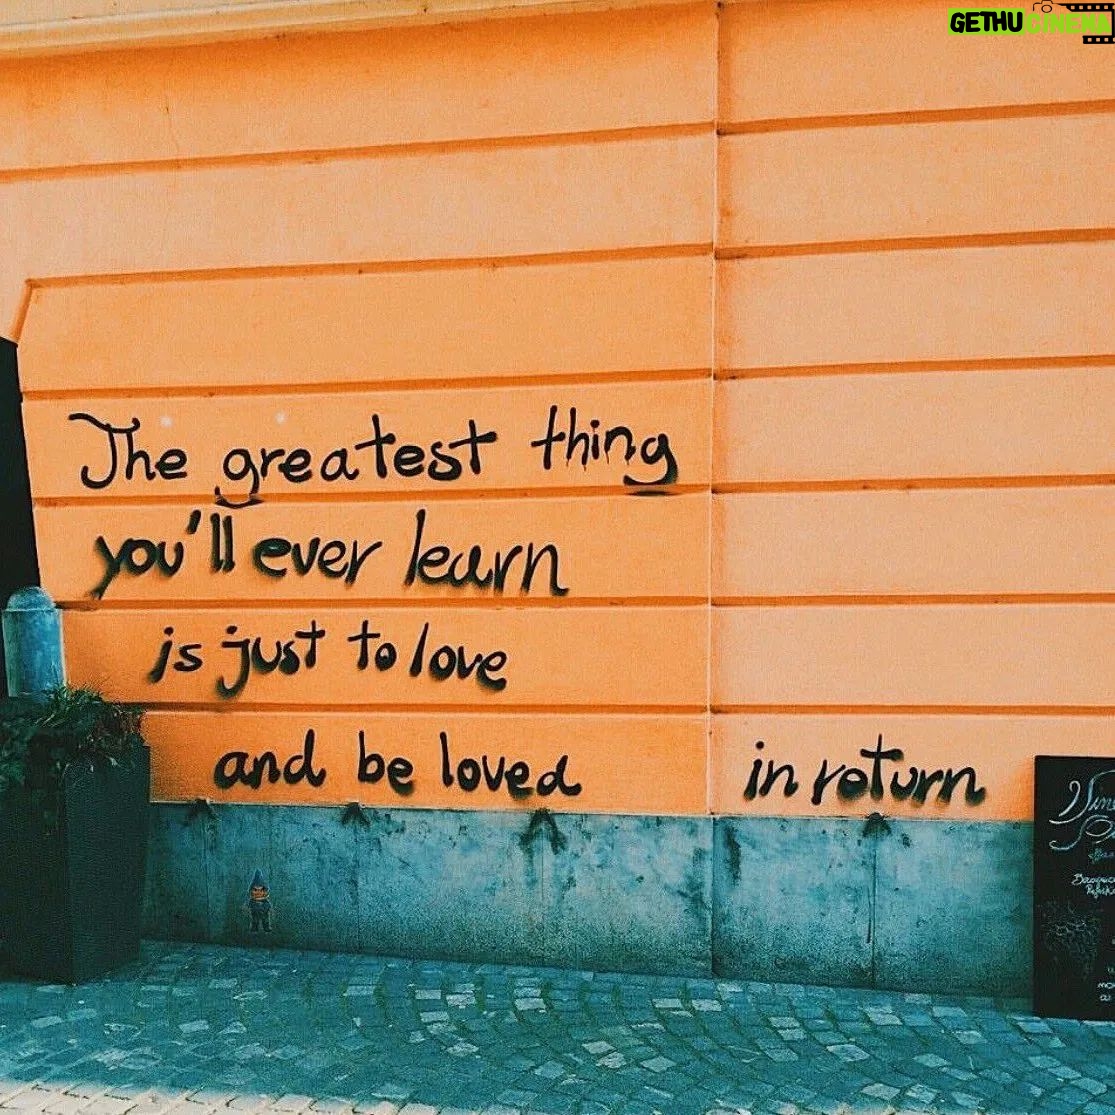 GETHUCINEMA
The greatest thing
you'll ever learn
is just to love
and be loved in return